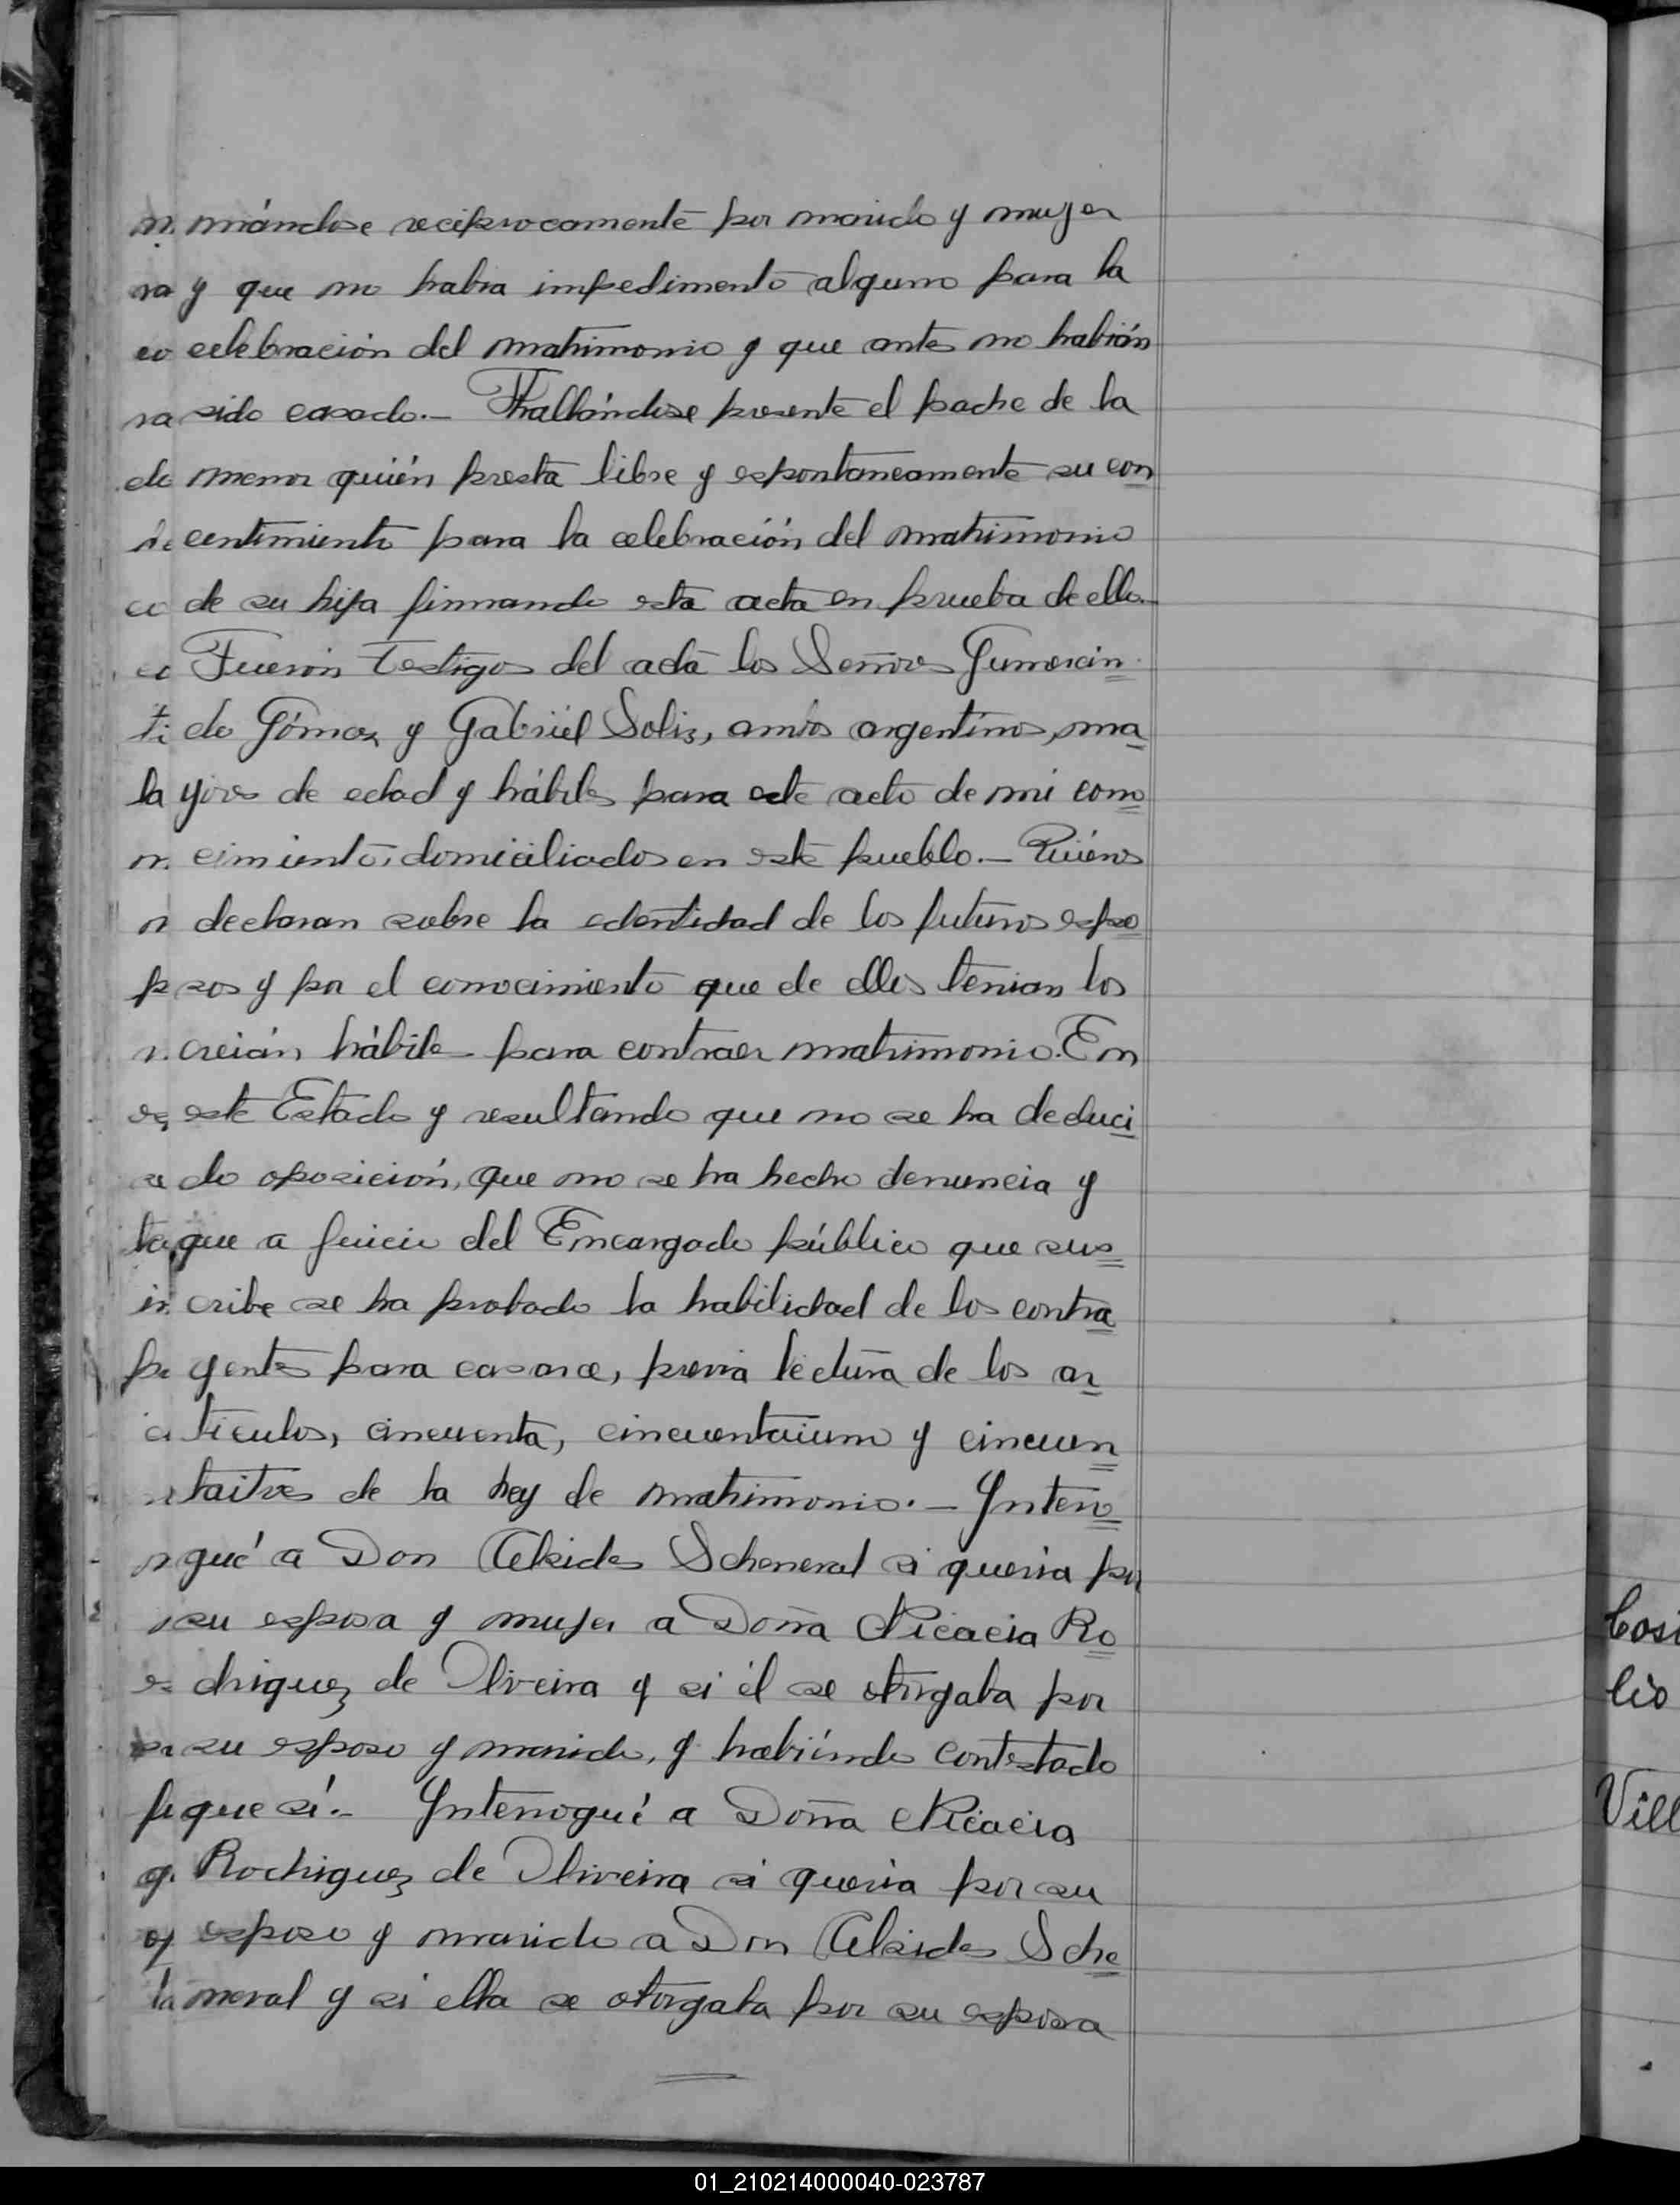 mándose reciprocamente por marido y mujer
y que no habia impedimento alguno para la
celebración del matrimonio y que antes no habián
sido casado.- Hallándose presente el padre de la
menor quién presta libre y espontaneamente su con
centimiento para la celebración del matrimonio
de su hija firmando esta acta en prueba de ello.-
Fuerón Testigos del acta los Señores Gumercin
do Gómez y Gabriel Solis, ambos argentinos, ma
yores de edad y hábiles para este acto de mi cono
cimiento, domiciliados en este pueblo.- Quiénes
declaran sobre la edentidad de los futuros espo
sos y por el conocimiento que de ellos tenian los
creián hábiles para contraer matrimonio. En
este Estado y resultando que no se ha deduci
do oposición, que no se ha hecho denuncia y
que a juicio del Encargado público que sus
cribe se ha probado la habilidad de los contra
yentes para casarce, previa lectura de los ar
ticulos, cincuenta, cincuentaiuno y cincuen
taitres de la ley de matrimonio.- Interro
gué a Don Alcides Scheneral si queria por
su esposa y mujer a Doña Nicacia Ro
driguez de Oliveira y si él se otorgaba por
su esposo y marido, y habiéndo contestado
que sí.- Interrogué a Doña Nicacia
Rodriguez de Oliveira si queria por su
esposo y marido a Don Alcides Sche
neral y si ella se otorgaba por su esposa
Cosi
lio
Vill
01_210214000040-023787